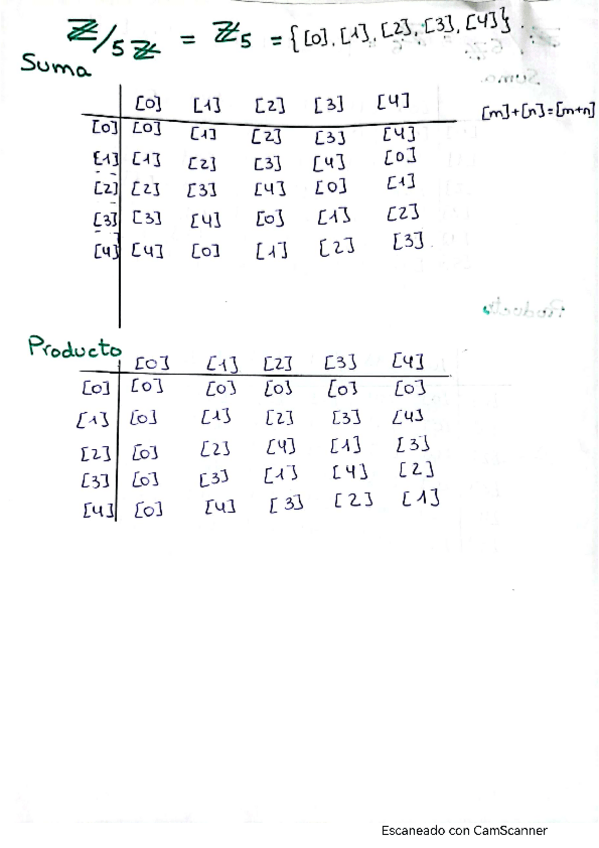 ℤ/5ℤ = ℤ5 = {[0], [1], [2], [3], [4]}.
Suma
[0] [1] [2] [3] [4]
[m]+[n]=[m+n]
[0] [0] [1] [2] [3] [4]
[1] [1] [2] [3] [4] [0]
[2] [2] [3] [4] [0] [1]
[3] [3] [4] [0] [1] [2]
[4] [4] [0] [1] [2] [3].
Producto
[0] [1] [2] [3] [4]
[0] [0] [0] [0] [0] [0]
[1] [0] [1] [2] [3] [4]
[2] [0] [2] [4] [1] [3]
[3] [0] [3] [1] [4] [2]
[4] [0] [4] [3] [2] [1]
Escaneado con CamScanner